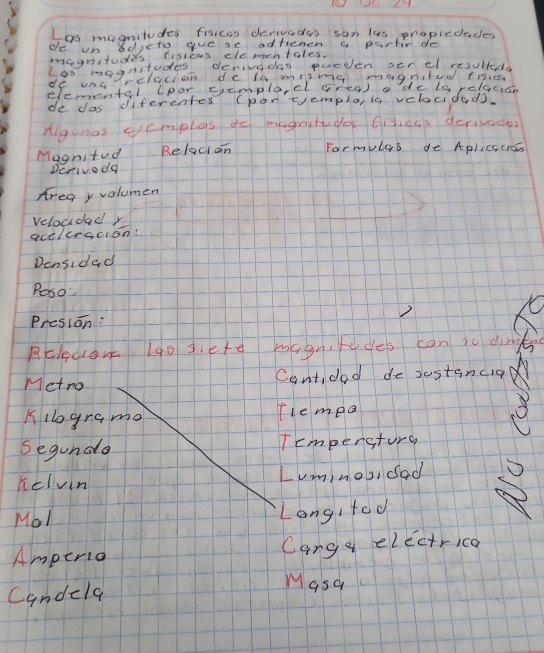 10 06 24
Las magnitudes fisicas derivadas son las propiedades
de un objeto que se obtienen a partir de
magnitudes fisicas elementales.
Las magnitudes derivadas pueden ser el resultado
de una relación de la misma magnitud fisica
elemental (por ejemplo, el area) o de la relación
de dos diferentes (por ejemplo, la velocidad).
Algunos ejemplos de magnitudes fisicas derivadas
Magnitud Relación Formulas de Aplicación
Derivada
Área y volumen
Velocidad y
aceleración:
Densidad
Peso:
Presión:
Relacione las siete magnitudes con su
Metro Cantidad de sustancia
Kilogramo Tiempo
Segundo Temperatura
Kelvin Luminosidad
Mol Longitud
Amperio Carga eléctrica
Candela Masa